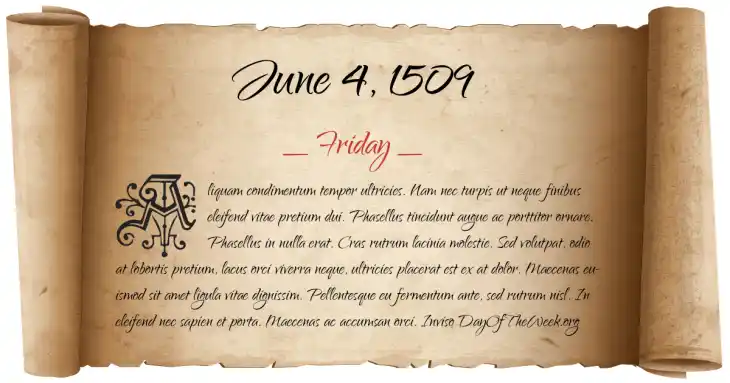 June 4, 1509
_ Friday _
Aliquam condimentum tempor ultricies. Nam nec turpis ut neque finibus
eleifend vitae pretium dui. Phasellus tincidunt augue ac porttitor ornare.
Phasellus in nulla erat. Cras rutrum lacinia molestie. Sed volutpat, odio
at lobortis pretium, lacus orci viverra neque, ultricies placerat est ex at dolor. Maecenas eu-
ismod sit amet ligula vitae dignissim. Pellentesque eu fermentum ante, sed rutrum nisl. In
eleifend nec sapien et porta. Maecenas ac accumsan orci. Inviso DayOfTheWeek.org